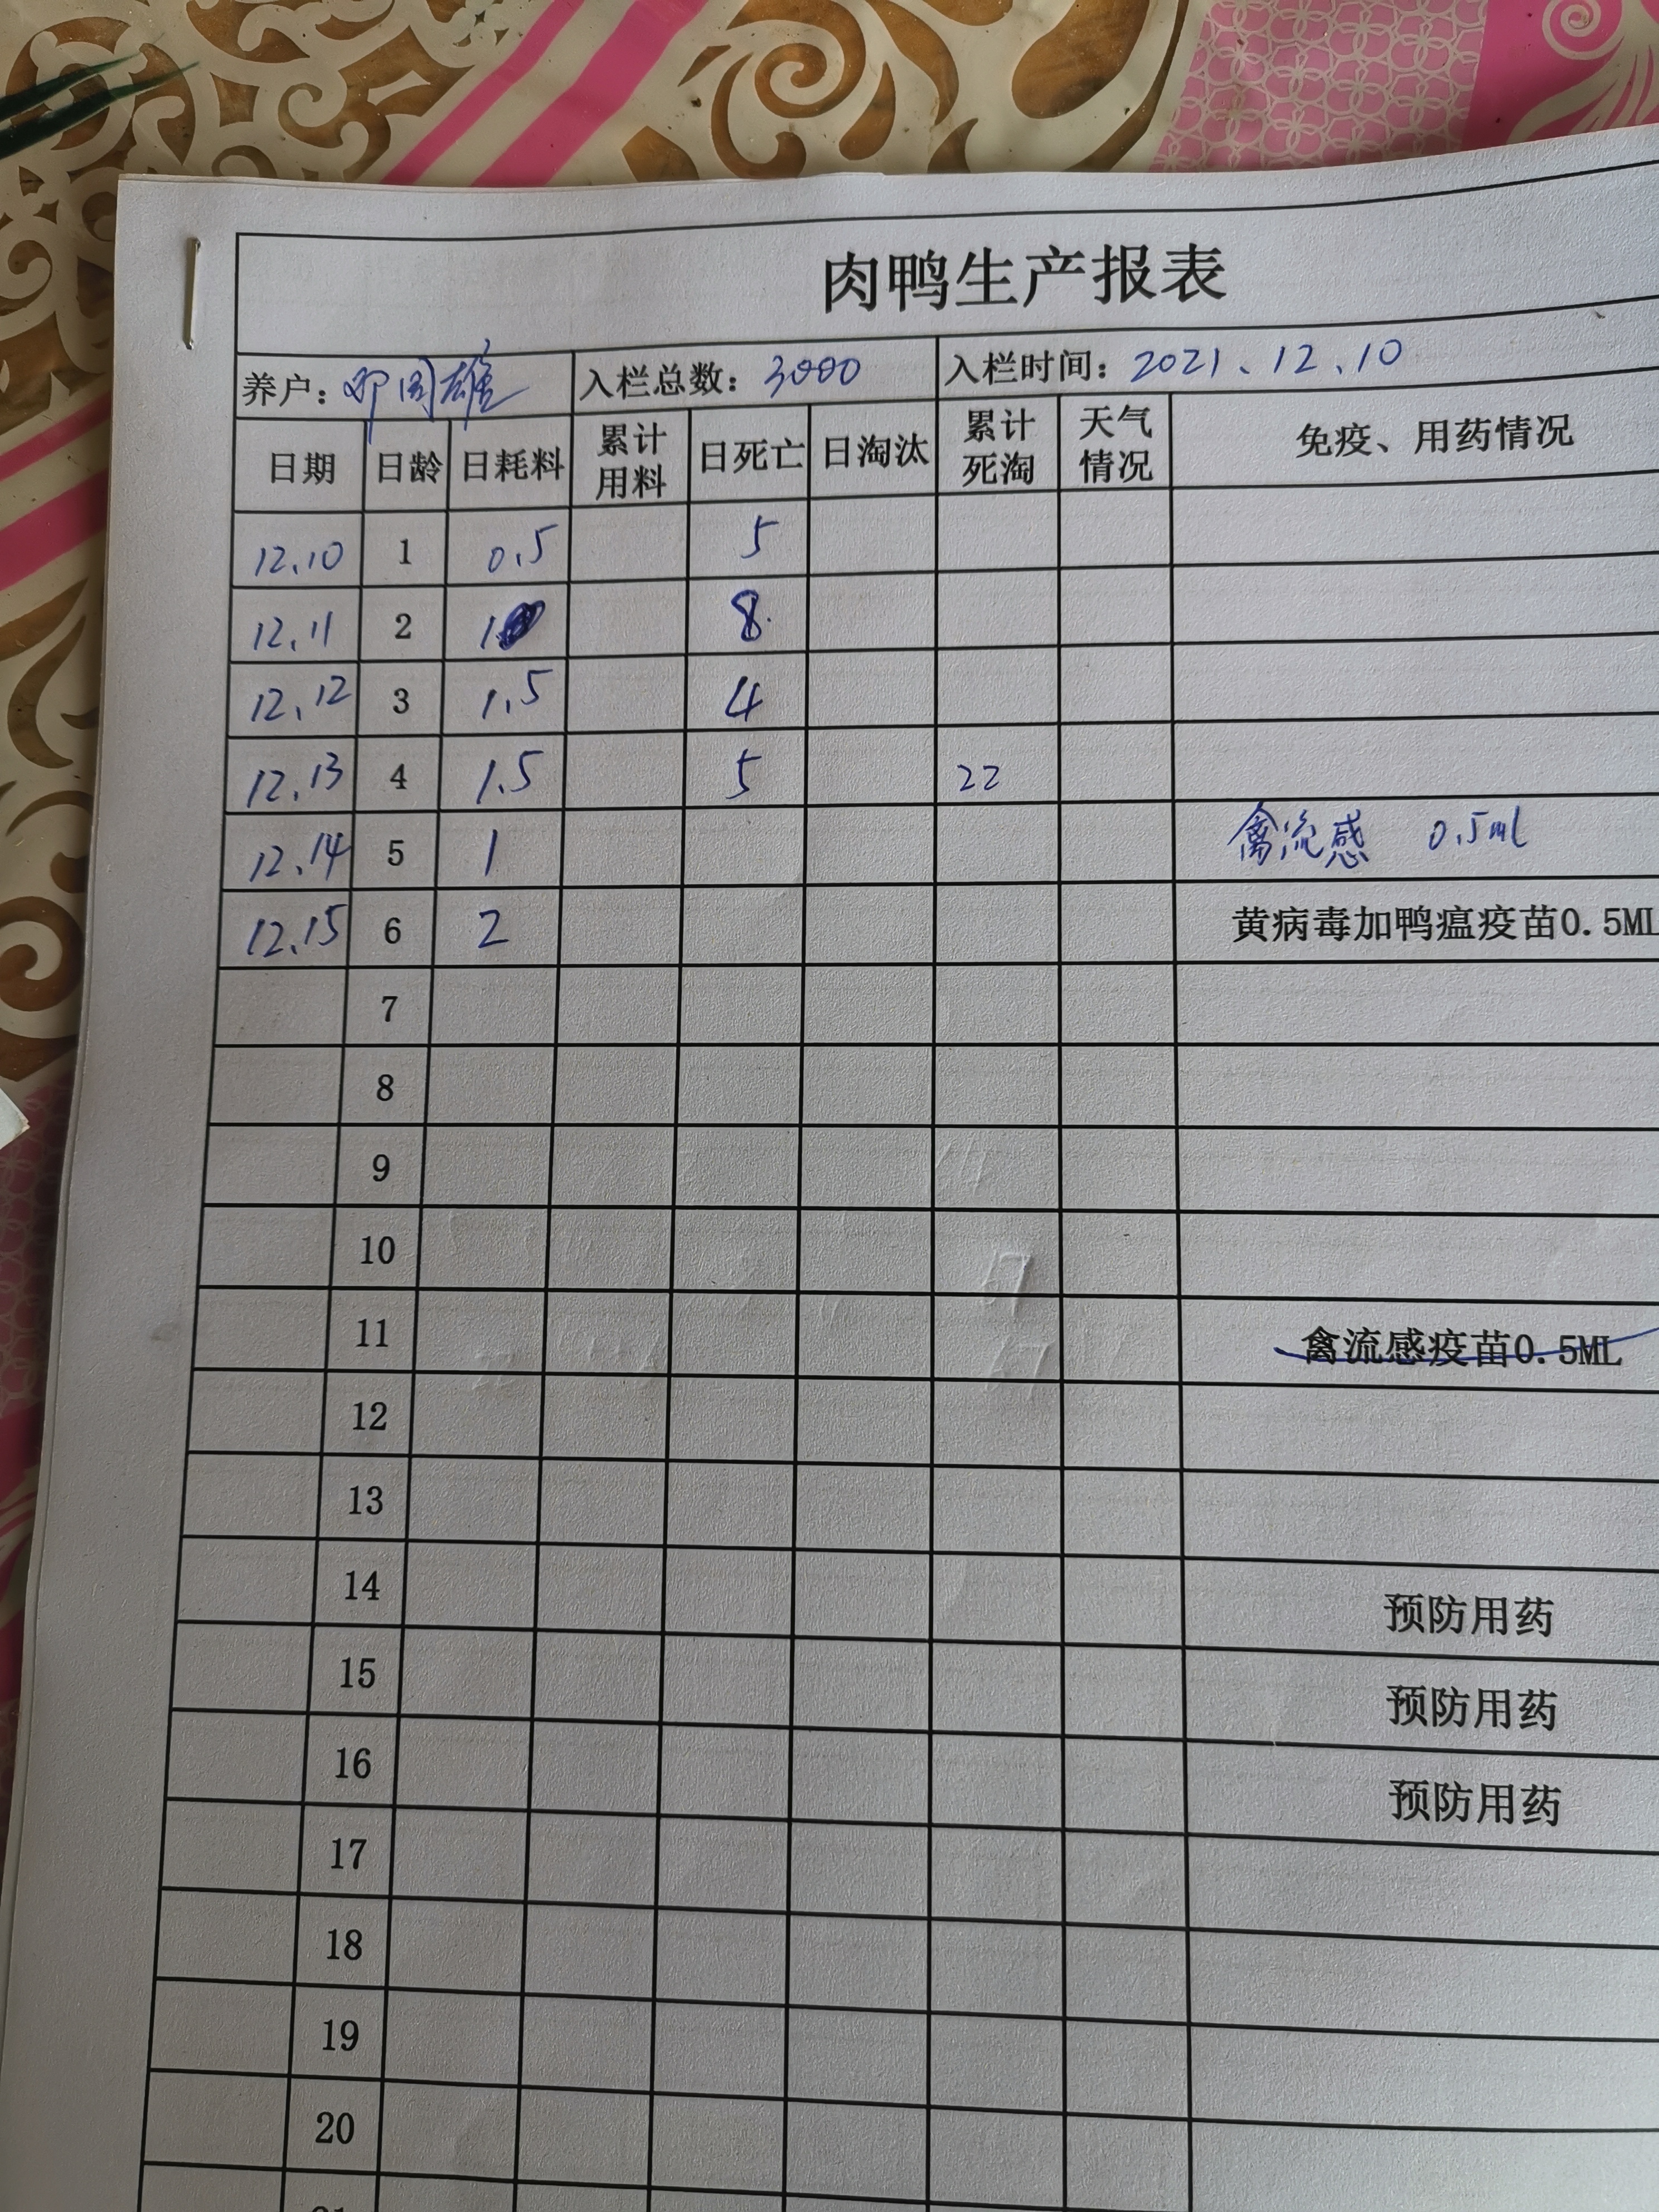 肉鸭生产报表
养户：邓国雄 入栏总数：3000 入栏时间：2021、12、10
日期 日龄 日耗料 累计用料 日死亡 日淘汰 累计死淘 天气情况 免疫、用药情况
12.10 1 0.5 5
12.11 2 1 8
12.12 3 1.5 4
12.13 4 1.5 5 22
12.14 5 1 禽流感 0.5ml
12.15 6 2 黄病毒加鸭瘟疫苗0.5ML
7
8
9
10
11 禽流感疫苗0.5ML
12
13
14 预防用药
15 预防用药
16 预防用药
17
18
19
20